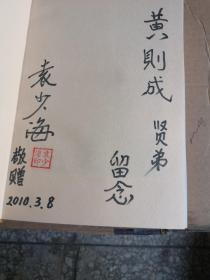 黄則成
贤弟
留念
袁少海
敬赠
2010.3.8